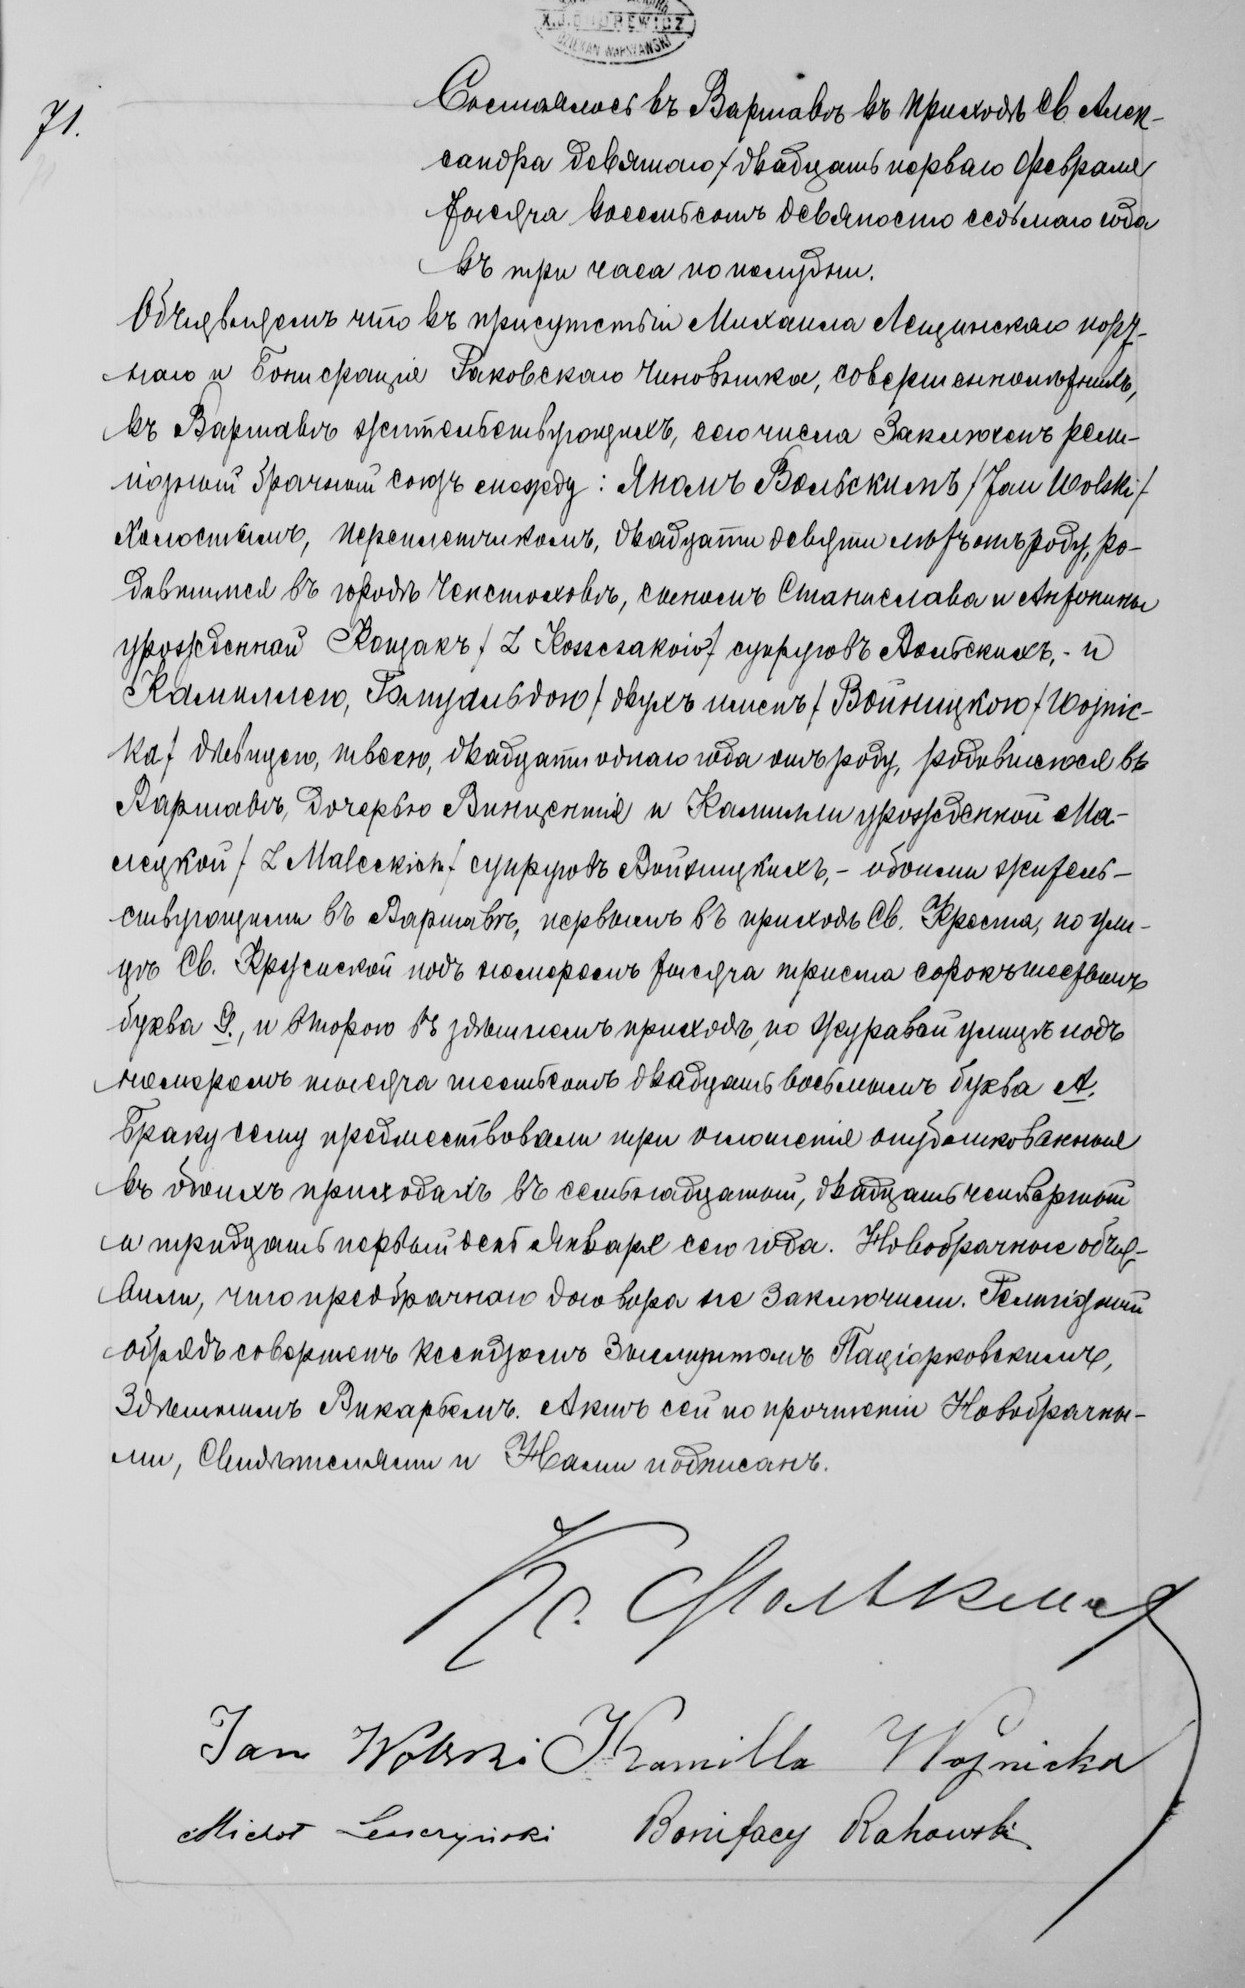 X.J.
DZIEKAN WARSZAWSKI
71.
Состоялось въ Варшавѣ въ приходѣ Св. Алек-
сандра девятаго / двадцать перваго Февраля
тысяча восемьсотъ девяносто седьмаго года
въ три часа по полудни.
Объявляемъ что въ присутствіи Михаила Лещинскаго
и Бонифація Раковскаго чиновника, совершеннолѣтнихъ,
въ Варшавѣ жительствующихъ, сего числа заключенъ рели-
гіозный брачный союзъ между: Яномъ Вольскимъ / Jan Wolski /
холостымъ, переплетчикомъ, двадцати девяти лѣтъ отъ роду, ро-
дившимся въ городѣ Ченстоховѣ, сыномъ Станислава и Антонины
урожденной Кощакъ / z Koszczaków / супруговъ Вольскихъ, - и
Камиллею, Ромуальдою / двухъ именъ / Войницкою / Wojnic-
ka / дѣвицею, швеею, двадцати однаго года отъ роду, родившеюся въ
Варшавѣ, дочерью Винцентія и Камилли урожденной Ма-
лецкой / z Maleckich / супруговъ Войницкихъ, - обоими жител-
ствующими въ Варшавѣ, первымъ въ приходѣ Св. Креста, по ули-
цѣ Св. Кржиской подъ номеромъ тысяча триста сорокъ шестымъ
буква, и второю въ здѣшнемъ приходѣ, по Журавей улицѣ подъ
номеромъ тысяча шестьсотъ двадцать восьмымъ буква А.
Браку сему предшествовали три оглашенія опубликованныя
въ обоихъ приходахъ въ семьнадцатый, двадцать четвертый
и тридцать первый день Января сего года. Новобрачные объя-
вили, что предбрачнаго договора не заключили. Религіозный
обрядъ совершенъ ксендзомъ Зыгмунтомъ Паціорковскимъ,
здѣшнимъ Викарьемъ. Актъ сей по прочтеніи Новобрачны-
ми, Свидѣтелями и Нами подписанъ.
Кс.
Jan Wolski Kamilla Wojnicka
Michał Leszczyński Bonifacy Rakowski